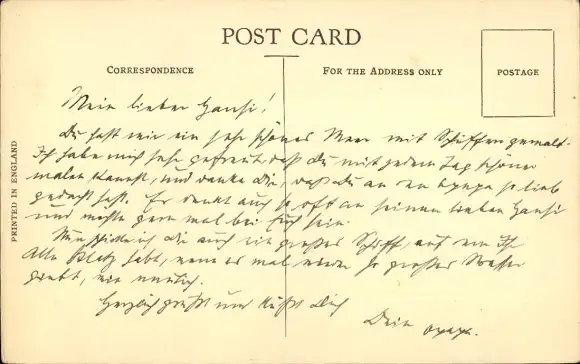 POST CARD
CORRESPONDENCE
FOR THE ADDRESS ONLY
POSTAGE
PRINTED IN ENGLAND
Mein lieber Hansi!
Du hast mir ein sehr schönes Meer mit Schiffen gemalt.
Ich habe mich sehr gefreut, daß Du mit jedem Tag schöner
malen kannst, und danke Dir, daß Du an den Opapa so lieb
gedacht hast. Er denkt auch so oft an seinen lieben Hansi
und möchte gern mal bei Euch sein.
Nun schicke ich Dir auch ein großes Schiff, auf dem Ihr
Alle Platz habt, wenn es mal wieder so großes Wasser
giebt, wie neulich.
Herzlich grüßt und küßt Dich
Dein Opapa.